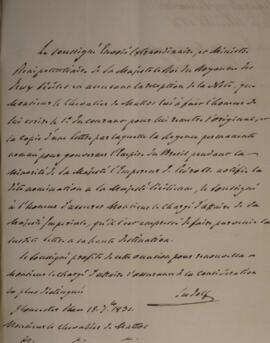 Le Soussigné Envoyé Extraordinaire, et Ministre
Plénipotentiaire de Sa Majesté le Roi du Royaume des
Deux Siciles en accusant la réception de la Note, que
Monsieur le Chevalier de Mattos lui a fait l'honneur de
lui écrire le 1r du courant pour lui remettre l'original, et
la copie d'une lettre par laquelle la Régence permanente
nommée pour gouverner l'Empire du Brésil pendant la
Minorité de Sa Majesté l'Empereur Dn Pedro II notifie la
dite nomination à Sa Majesté Sicilienne, le Soussigné
a l'honneur d'assurer Monsieur le Chargé d'affaires de Sa
Majesté Impériale, qu'il s'est empressé de faire parvenir la
susdite lettre à sa haute destination.
Le Soussigné profite de cette occasion pour renouveller à
Monsieur le Chargé d'affaires l'assurance de sa considération
la plus distinguée
Ludolf
1831.
Monsieur le Chevalier de Mattos